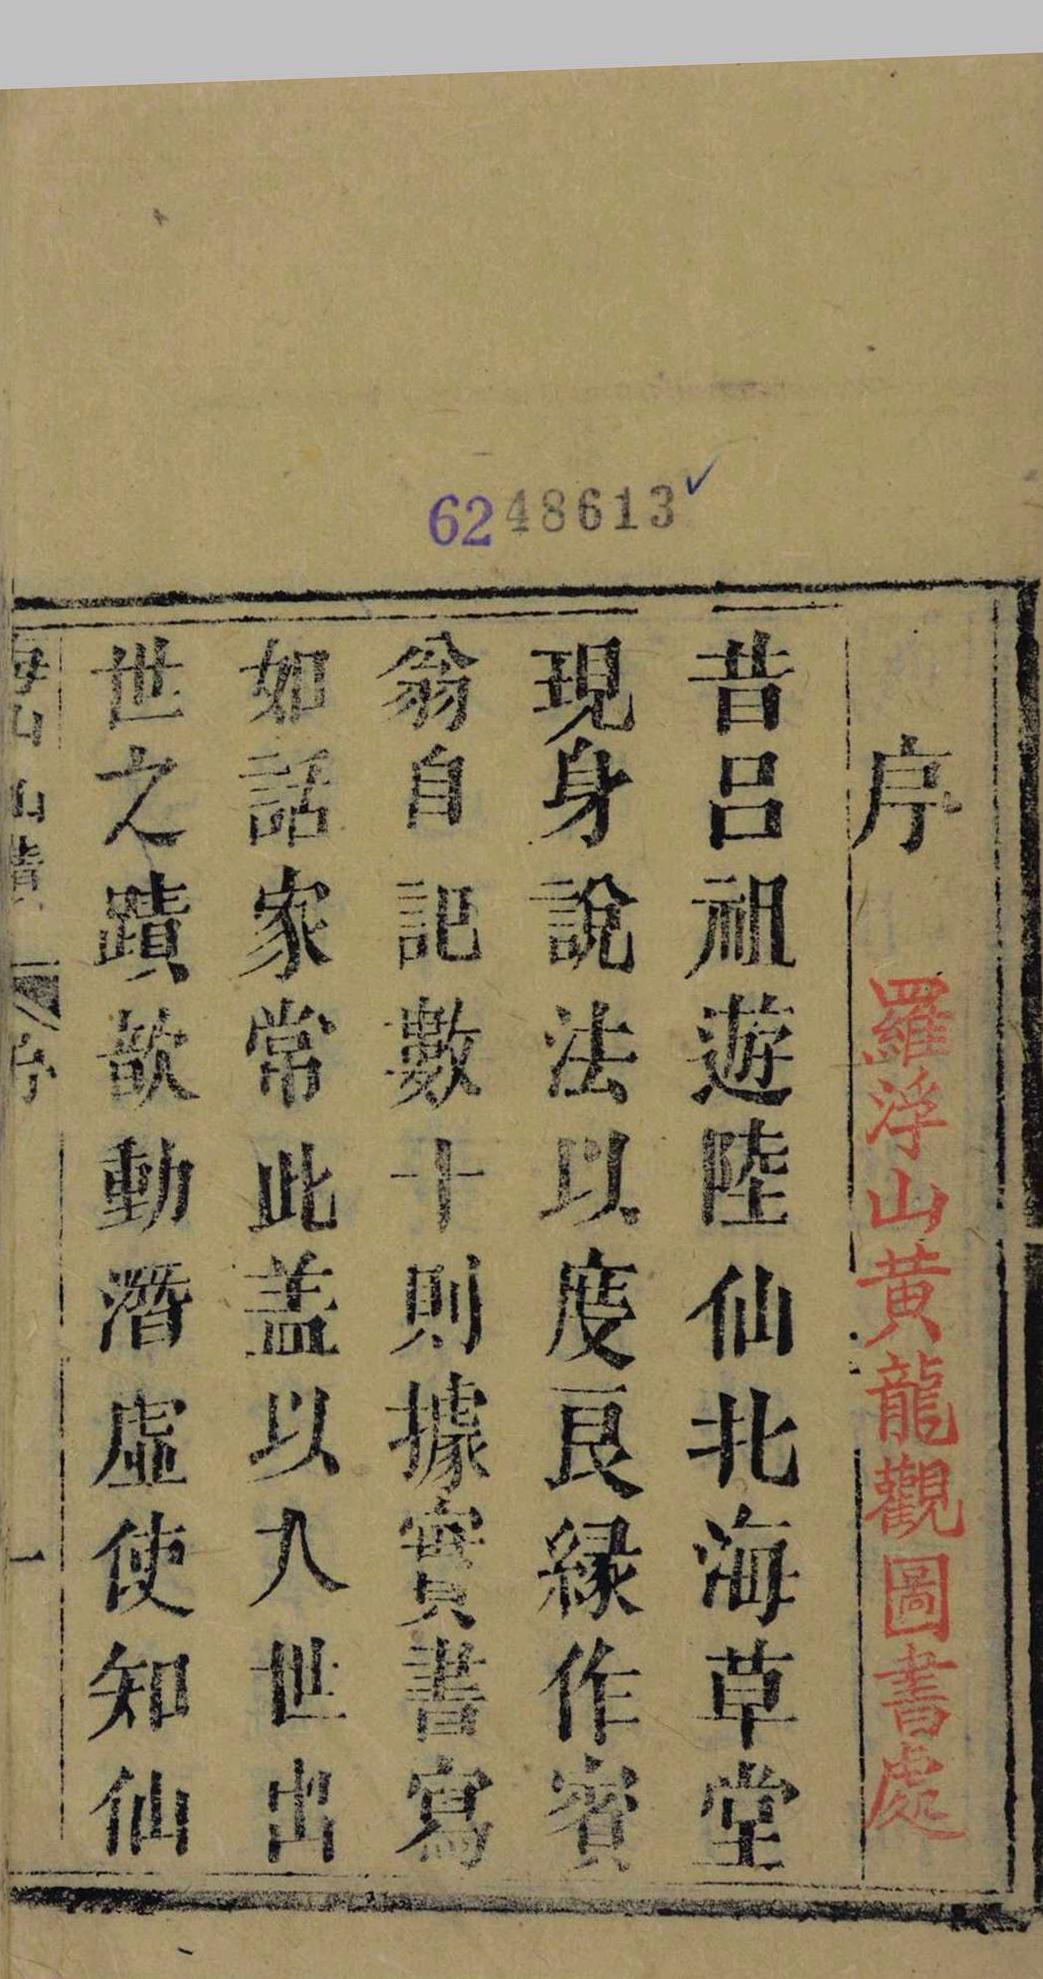 6248613
序
羅浮山黄龍觀圖書處
昔吕祖遊陸仙北海草堂
現身說法以度良緣作賓
翁自記數十則據實書寫
如話家常此盖以入世出
世之蹟歆動潛虛使知仙
序
一